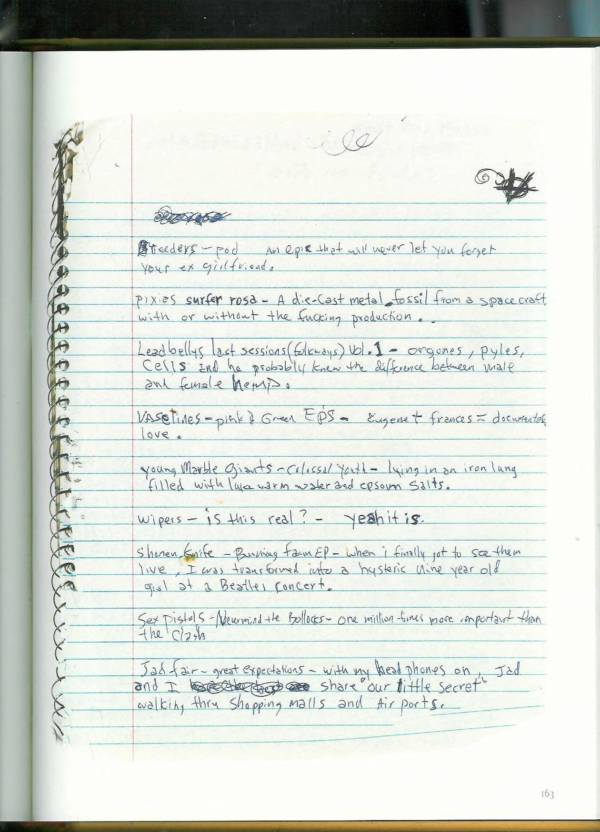 Breeders - pod   An epic that will never let you forget
your ex girlfriend.
pixies surfer rosa - A die-cast metal fossil from a spacecraft
with or without the fucking production...
Leadbellys last sessions (folkways) Vol. 1 - orgones, pyles,
cells and he probably knew the difference between male
and female hemp.
VASelines - pink & Green EPs - Eugene + frances = documented
love.
young Marble Giants - Colossal Youth - lying in an iron lung
filled with luke warm water and epsom salts.
wipers - is this real? - yeah it is.
Shonen knife - Burning farm EP - when i finally got to see them
live, I was transformed into a hysteric nine year old
girl at a Beatles concert.
Sex pistols - Nevermind the Bollocks - one million times more important than
the Clash
Jad fair - great expectations - with my head phones on, Jad
and I share "our little secret"
walking thru shopping malls and Air ports.
163